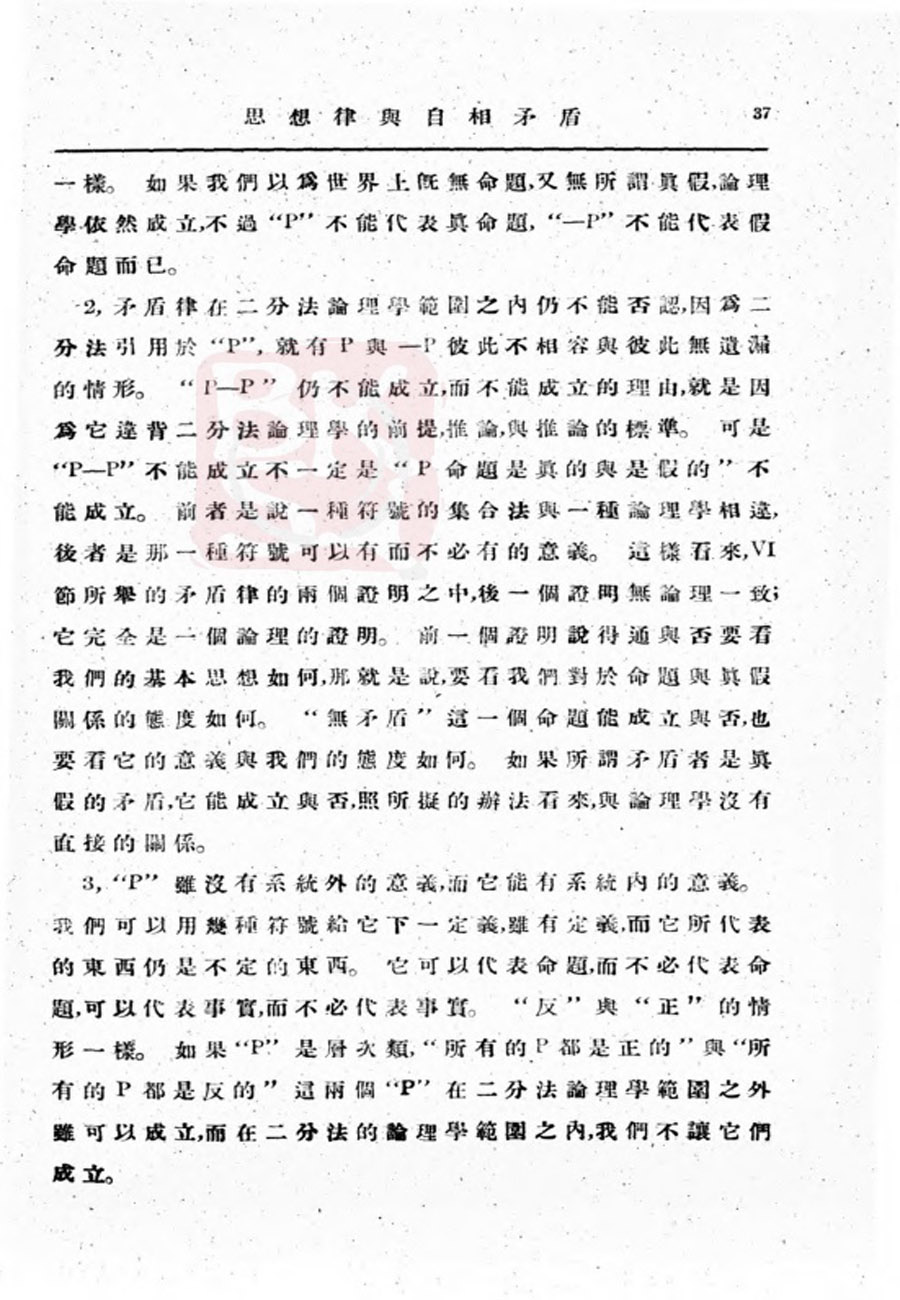 思想律與自相矛盾 37
一樣。 如果我們以爲世界上旣無命題,又無所謂眞假,論理
學依然成立,不過“P”不能代表眞命題,“—P”不能代表假
命題而已。
2, 矛盾律在二分法論理學範圍之內仍不能否認,因爲二
分法引用於“P”, 就有 P 與 —P 彼此不相容與彼此無遺漏
的情形。 “P—P” 仍不能成立,而不能成立的理由,就是因
爲它違背二分法論理學的前提,推論,與推論的標準。 可是
“P—P”不能成立不一定是“P 命題是眞的與是假的”不
能成立。 前者是說一種符號的集合法與一種論理學相違,
後者是那一種符號可以有而不必有的意義。 這樣看來,VI
節所舉的矛盾律的兩個證明之中,後一個證明無論理一致;
它完全是一個論理的證明。 前一個證明說得通與否要看
我們的基本思想如何,那就是說,要看我們對於命題與眞假
關係的態度如何。 “無矛盾”這一個命題能成立與否,也
要看它的意義與我們的態度如何。 如果所謂矛盾者是眞
假的矛盾,它能成立與否,照所擬的辦法看來,與論理學沒有
直接的關係。
3, “P” 雖沒有系統外的意義,而它能有系統內的意義。
我們可以用幾種符號給它下一定義,雖有定義,而它所代表
的東西仍是不定的東西。 它可以代表命題,而不必代表命
題,可以代表事實,而不必代表事實。 “反”與“正”的情
形一樣。 如果“P”是層次類,“所有的 P 都是正的”與“所
有的 P 都是反的”這兩個“P”在二分法論理學範圍之外
雖可以成立,而在二分法的論理學範圍之內,我們不讓它們
成立。